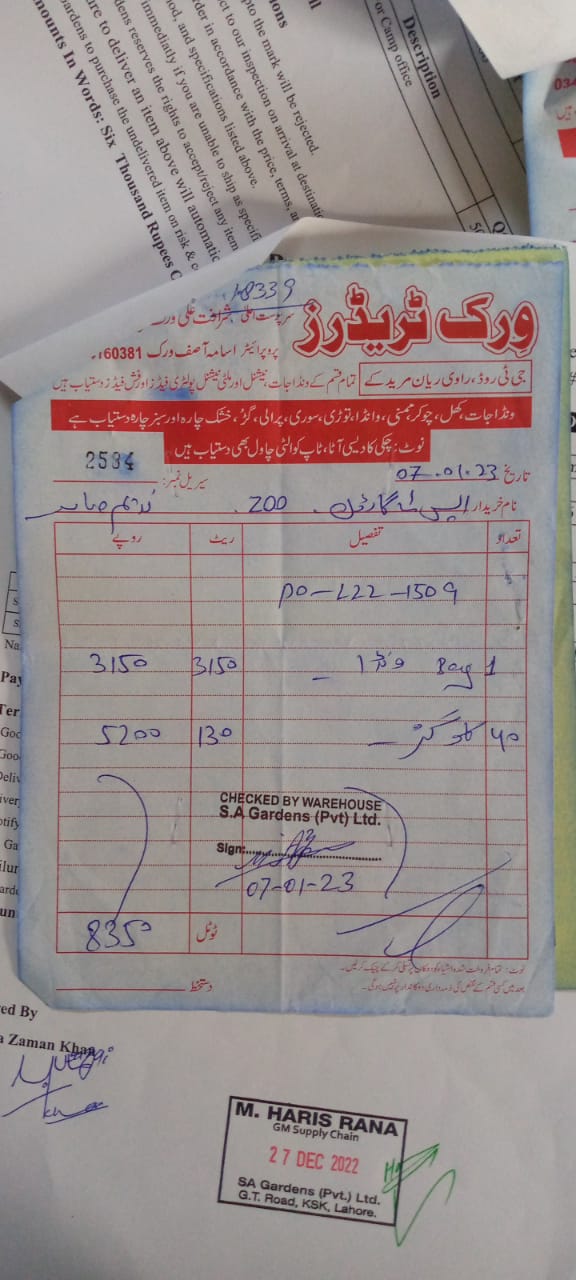 Description
or Camp office
pto the mark will be rejected.
ct to our inspection on arrival at destinatio
rder in accordance with the price, terms,
hod, and specifications listed above.
immediatly if you are unable to ship as specifi
dens reserves the rights to accept/reject any item
ure to deliver an item above will automatic
ardens to purchase the undelivered item on risk &
mounts In Words: Six Thousand Rupees
18339
ورک ٹریڈرز
سرپرست اعلیٰ شرافت علی ورک
پروپرائیٹر اسامہ آصف ورک 160381
جی ٹی روڈ، راوی ریان مریدکے تمام قسم کے ونڈا جات، نیشنل اور ملٹی نیشنل پولٹری فیڈز اور فش فیڈز دستیاب ہیں
ونڈا جات، کھل، چوکر، ممنی، وانڈا، توڑی، سوری، پرالی، گڑ، خشک چارہ اور سبز چارہ دستیاب ہے
نوٹ: چکی کا دیسی آٹا، ٹاپ کوالٹی چاول بھی دستیاب ہیں
تاریخ 07.01.23
سیریل نمبر: 2534
نام خریدار ایس اے گارڈن . ZOO .
تعداد تفصیل ریٹ روپے
PO-L22-1509
1 Bag ونڈا 3150 3150
40 کلو گڑ 130 5200
CHECKED BY WAREHOUSE
S.A Gardens (Pvt) Ltd.
Sign:
07-01-23
ٹوٹل 8350
نوٹ: تمام فروخت شدہ اشیاء کو دوکان پر تسلی کر کے چیک کر لیں۔
بعد میں کسی قسم کے نقص کی ذمہ داری دوکاندار پر نہیں ہو گی۔
دستخط
Pay
Ter
Goo
Goo
Deliv
iver
otify
Ga
ilur
arde
oun
ed By
a Zaman Khan
M. HARIS RANA
GM Supply Chain
27 DEC 2022
SA Gardens (Pvt.) Ltd.
G.T. Road, KSK, Lahore.